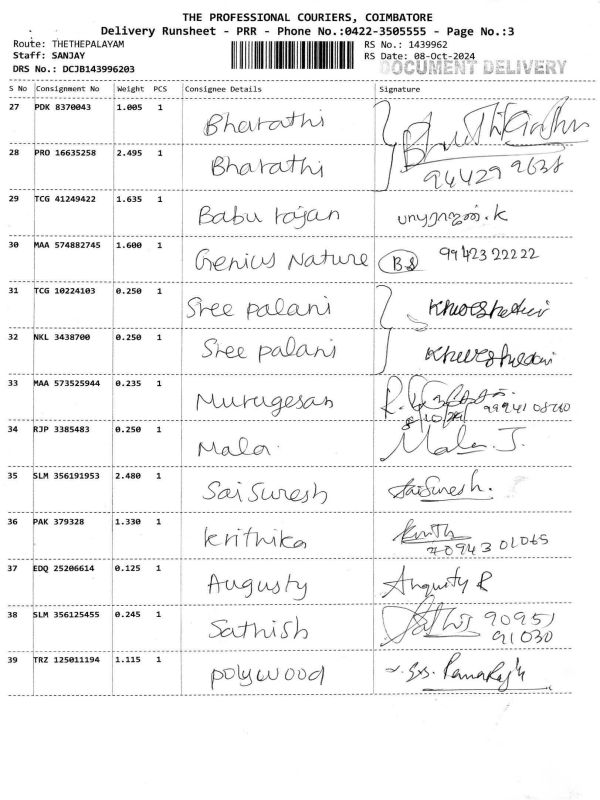 THE PROFESSIONAL COURIERS, COIMBATORE
Delivery Runsheet - PRR - Phone No.:0422-3505555 - Page No.:3
Route: THETHEPALAYAM RS No.: 1439962
Staff: SANJAY RS Date: 08-Oct-2024
DRS No.: DCJB143996203 DOCUMENT DELIVERY
S No Consignment No Weight PCS Consignee Details Signature
27 PDK 8370043 1.005 1 Bharathi
28 PRO 16635258 2.495 1 Bharathi 94429 9638
29 TCG 41249422 1.635 1 Babu rajan
30 MAA 574882745 1.600 1 Genius Nature BS 99423 22222
31 TCG 10224103 0.250 1 Sree palani
32 NKL 3438700 0.250 1 Sree palani
33 MAA 573525944 0.235 1 Murugesan 8/10/24
34 RJP 3385483 0.250 1 Mala Mala J.
35 SLM 356191953 2.480 1 Sai Suresh SaiSuresh.
36 PAK 379328 1.330 1 Krithika 70943 01065
37 EDQ 25206614 0.125 1 Augusty Augusty R
38 SLM 356125455 0.245 1 Sathish Sathis 90951
91030
39 TRZ 125011194 1.115 1 polywood